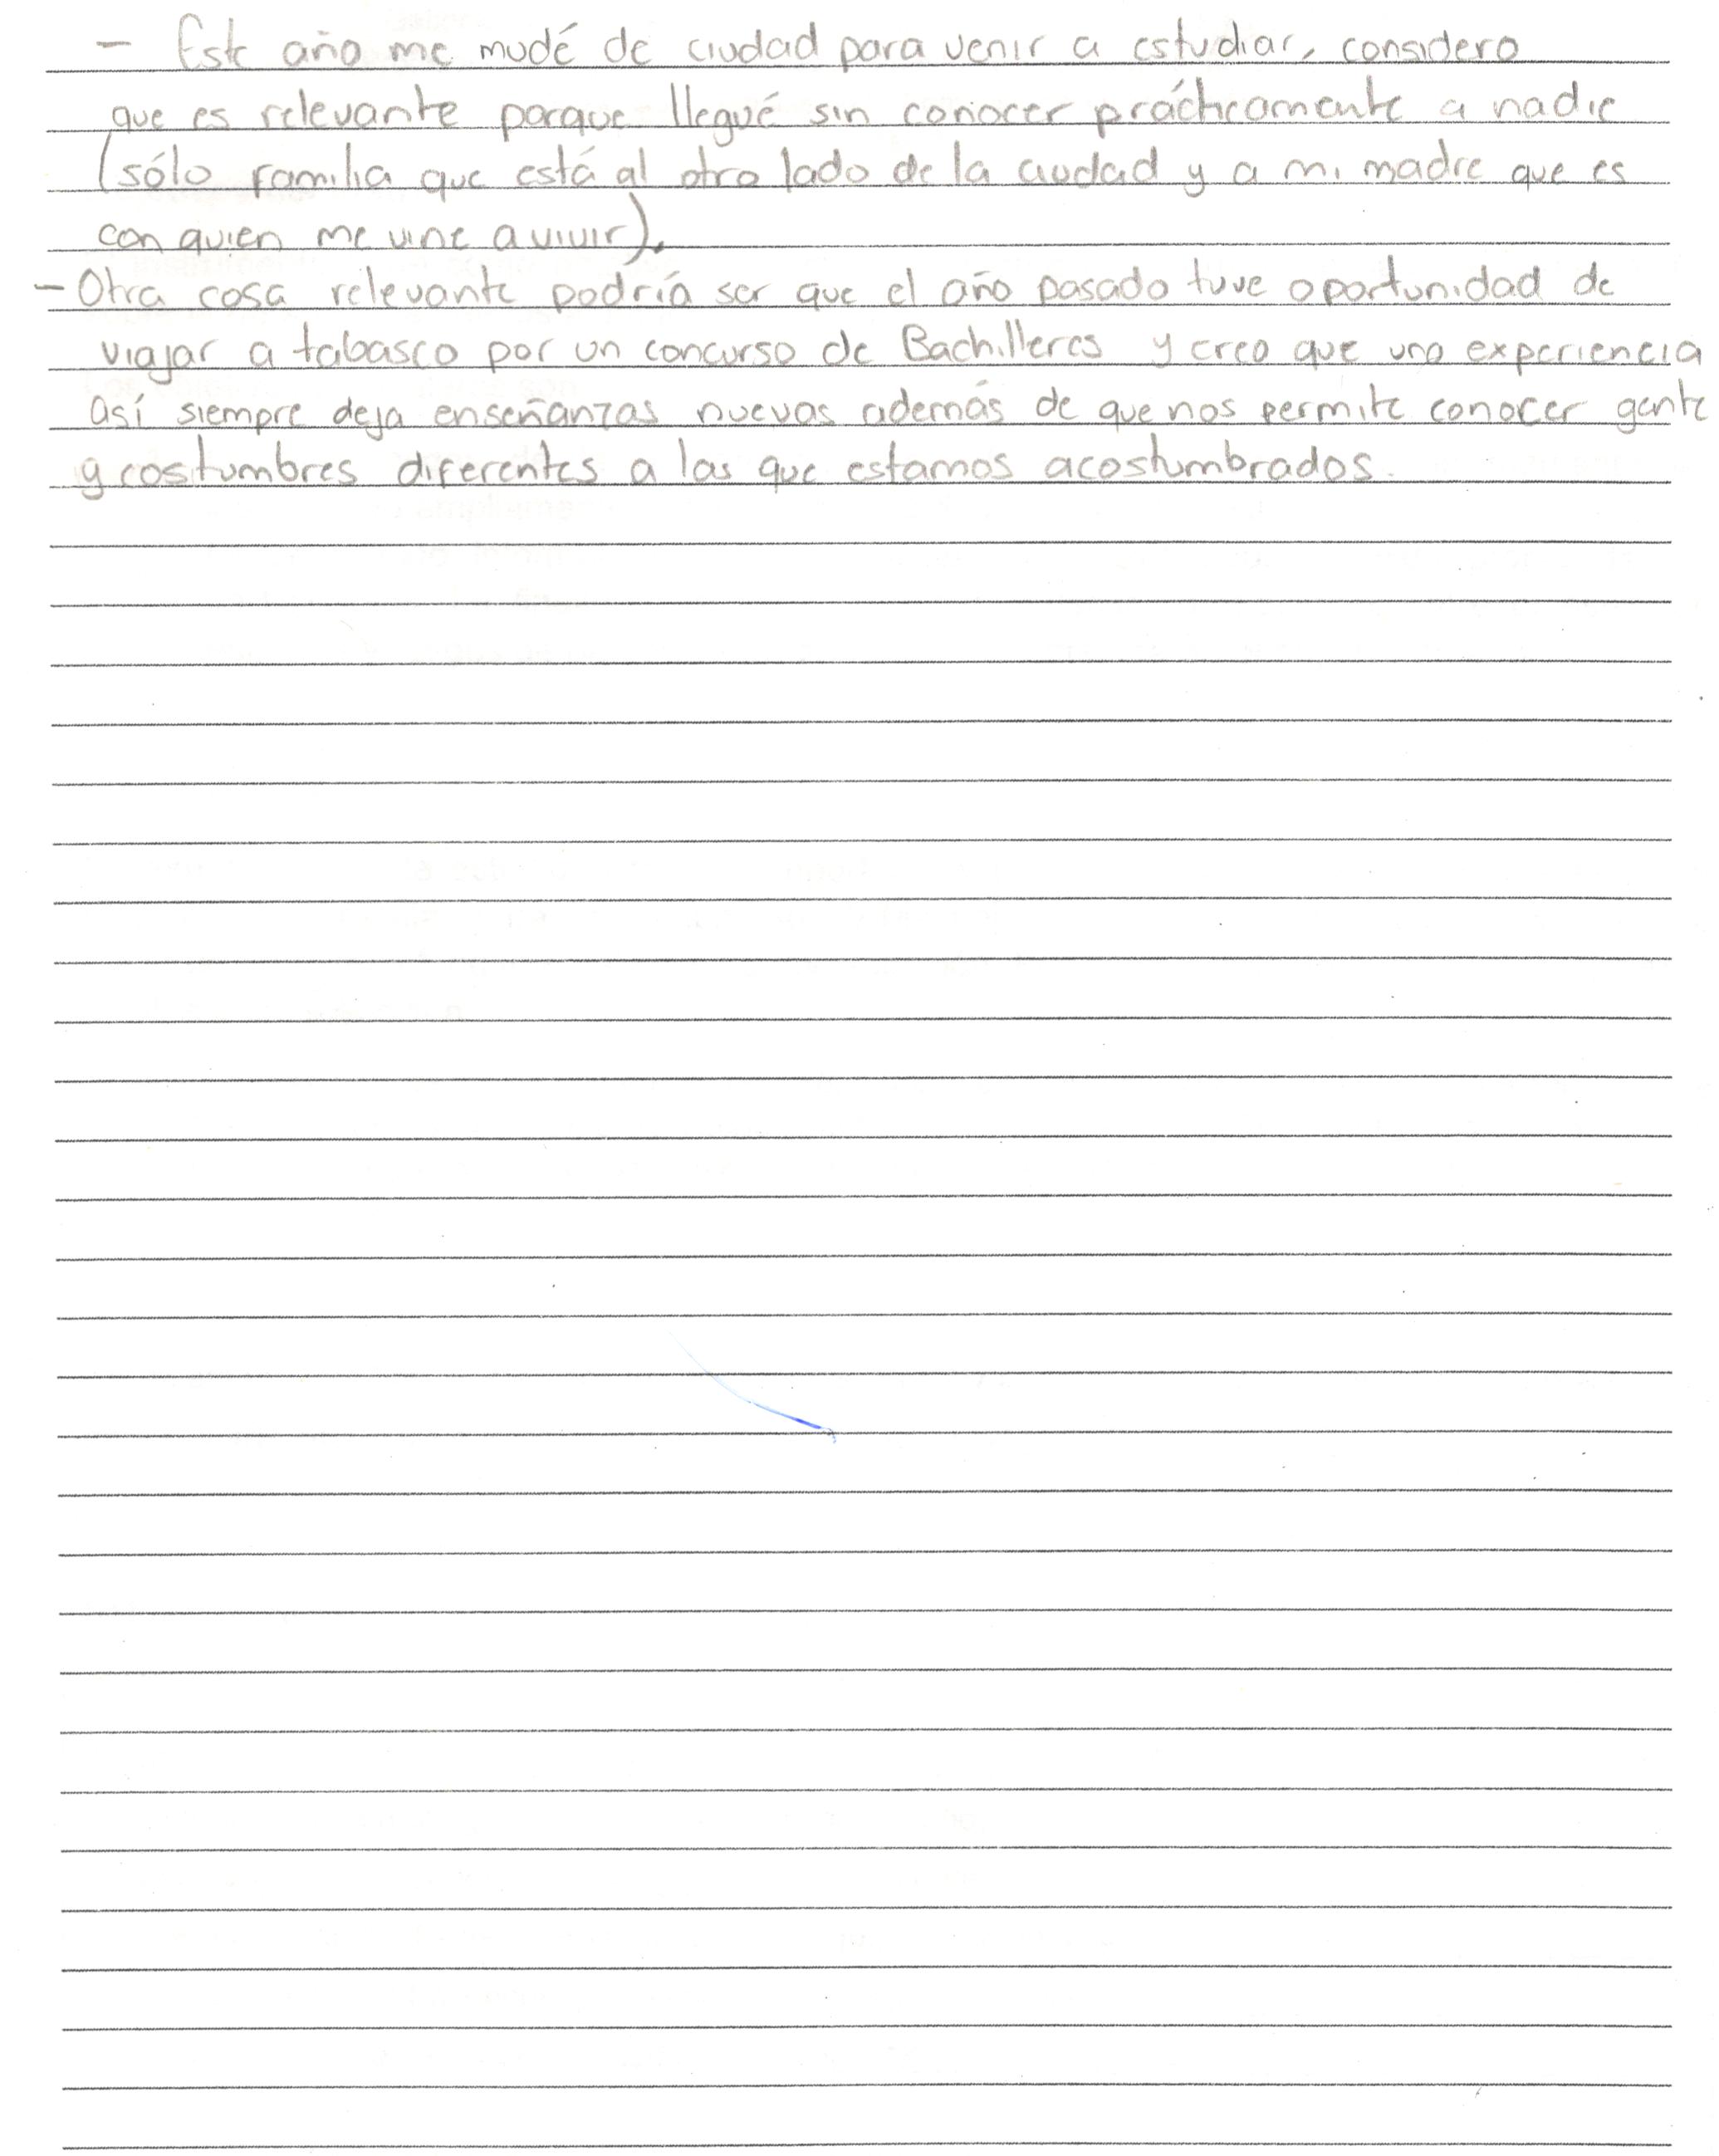 - Este año me mudé de ciudad para venir a estudiar, considero
que es relevante porque llegué sin conocer prácticamente a nadie
(sólo familia que está al otro lado de la ciudad y a mi madre que es
con quien me vine a vivir).
- Otra cosa relevante podría ser que el año pasado tuve oportunidad de
viajar a tabasco por un concurso de Bachilleres y creo que una experiencia
así siempre deja enseñanzas nuevas además de que nos permite conocer gente
y costumbres diferentes a las que estamos acostumbrados.